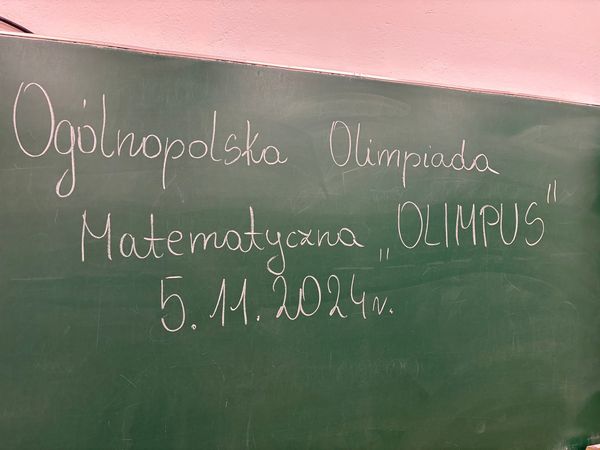 Ogólnopolska Olimpiada
Matematyczna „OLIMPUS"
5.11.2024r.